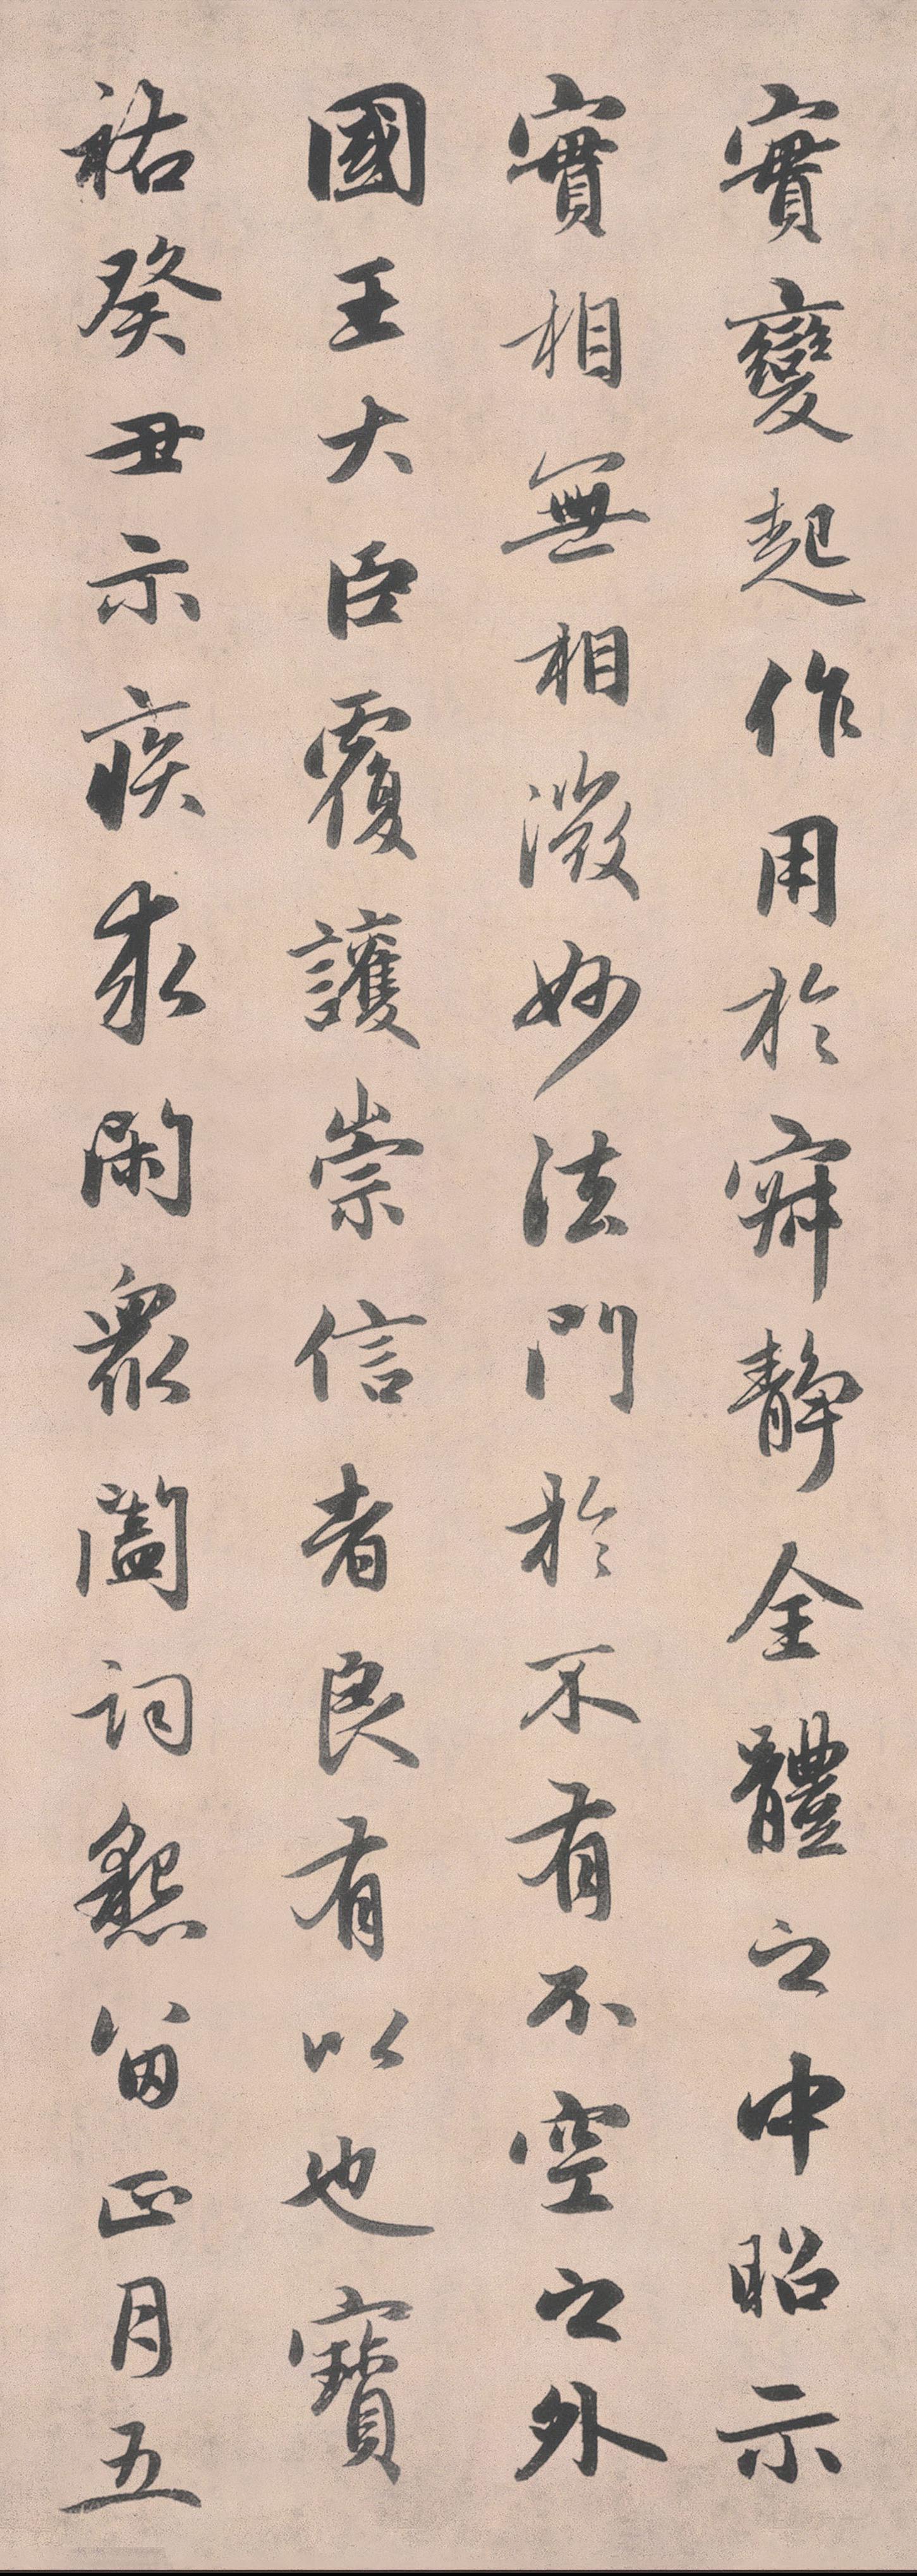 實變起作用於寂靜全體之中昭示
實相無相微妙法門於不有不空之外
國王大臣覆護崇信者良有以也寶
祐癸丑示疾求閑衆闔詞懇留正月五